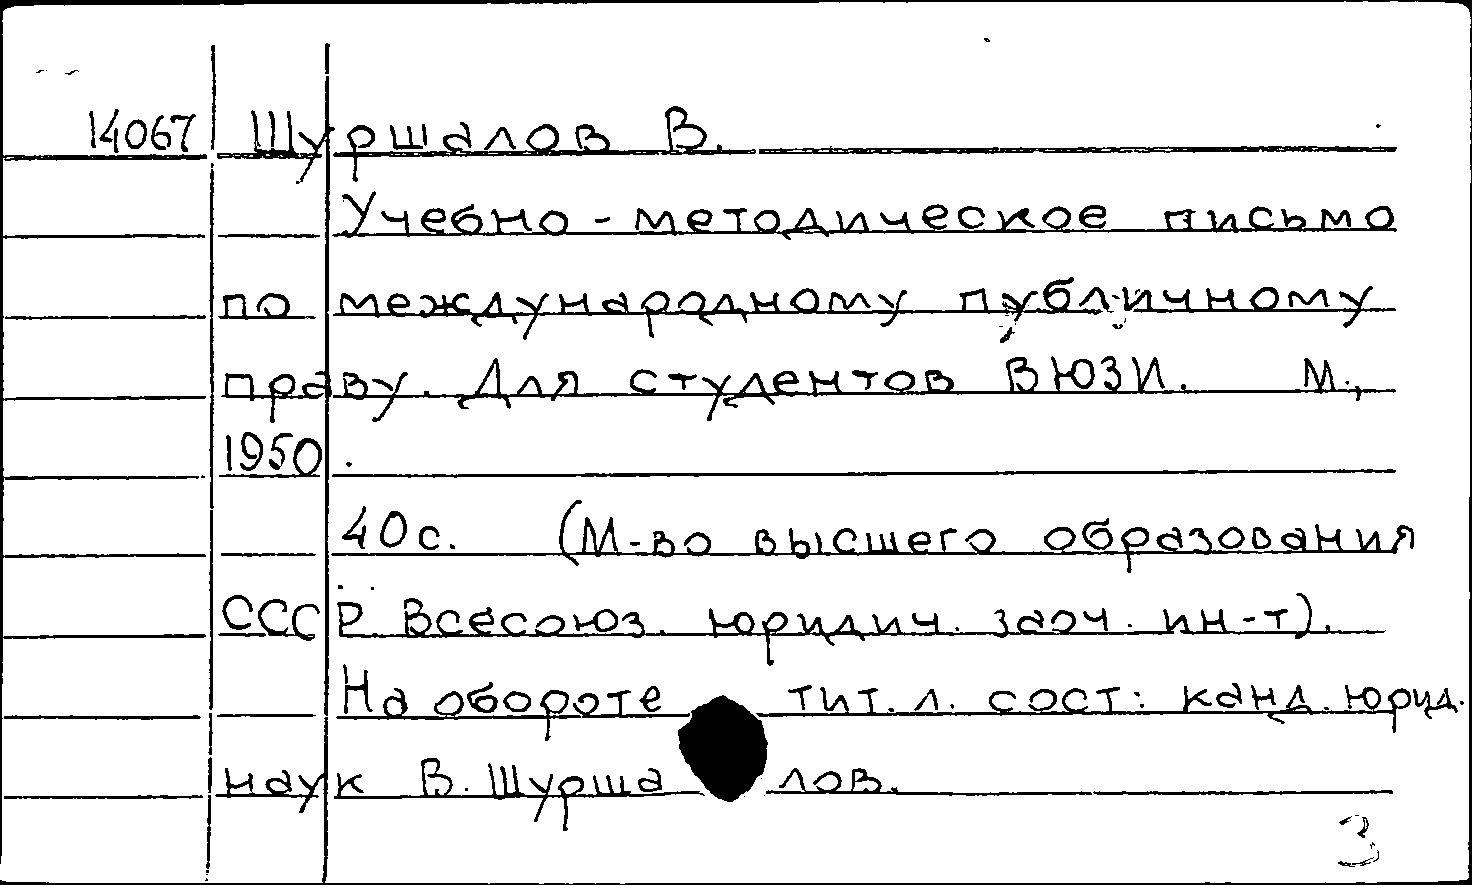 14067 Шуршалов В.
Учебно-методическое письмо
по международному публичному
праву. Для студентов ВЮЗИ. М.,
1950.
40с. (М-во высшего образования
СССР. Всесоюз. юридич. заоч. ин-т).
На обороте тит. л. сост: канд. юрид.
наук В. Шуршалов.
3